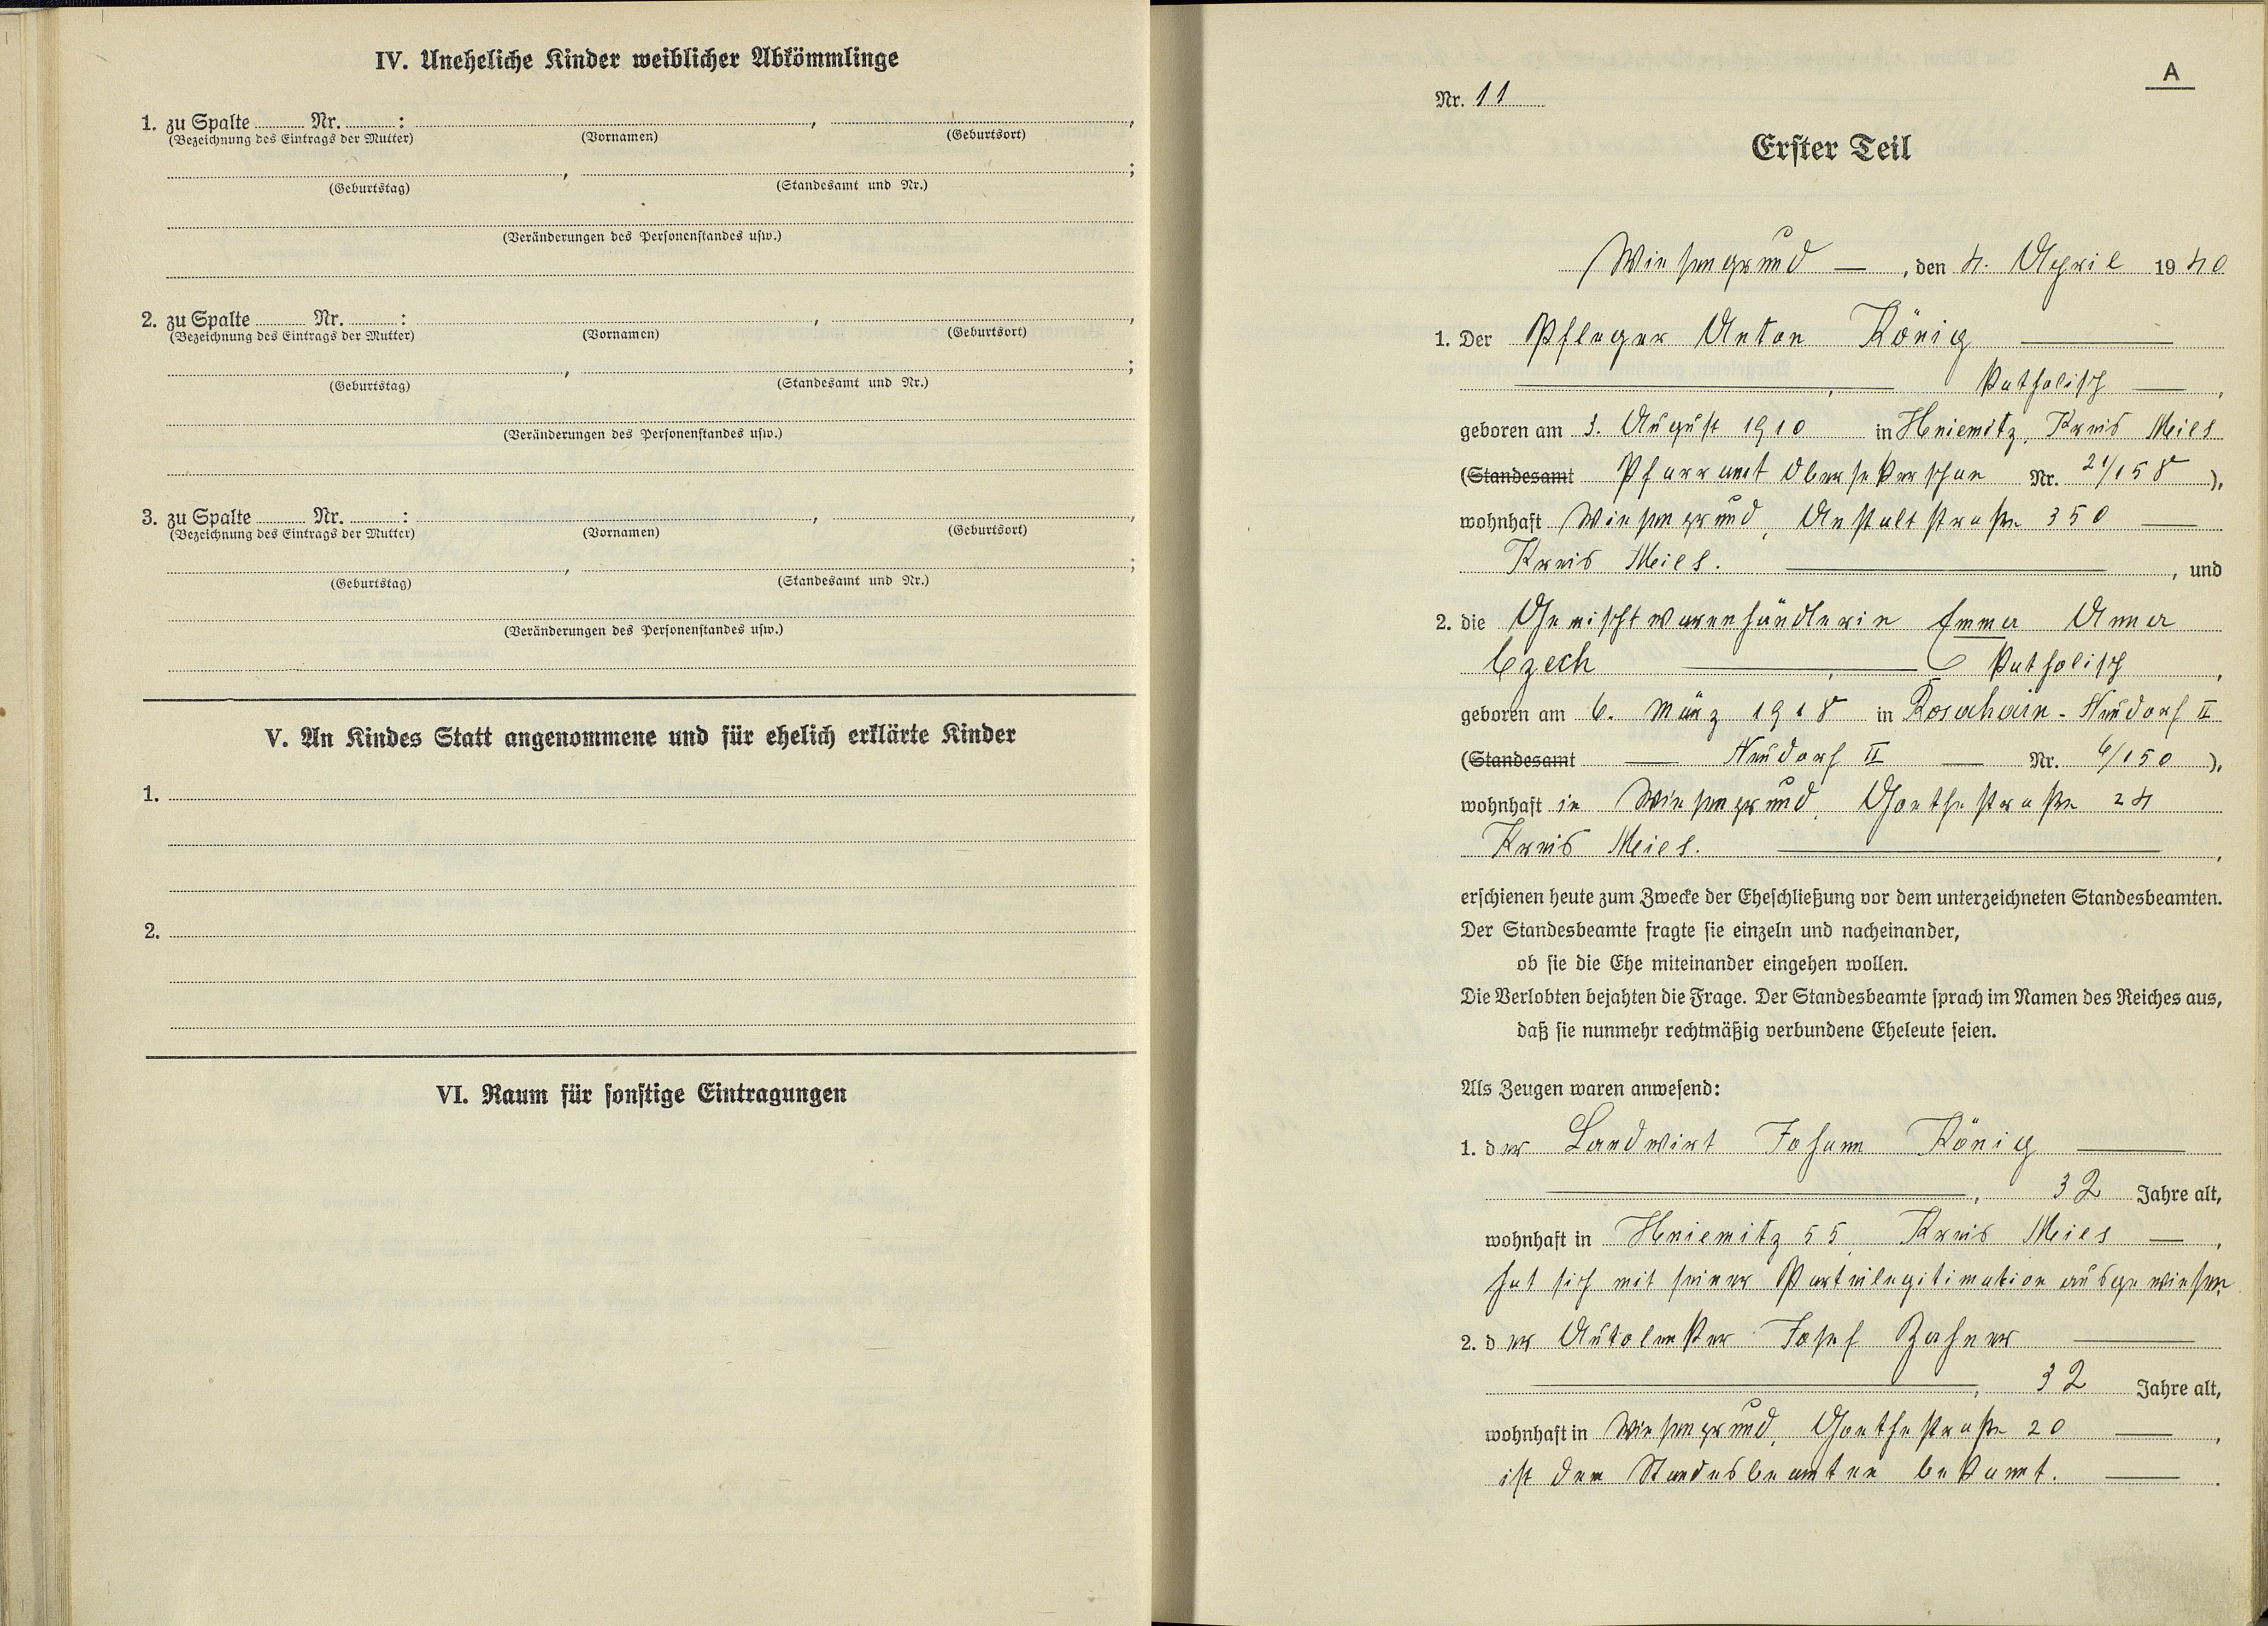 IV. Uneheliche Kinder weiblicher Abkömmlinge
1. zu Spalte ........ Nr. ........ : ........, ........,
(Bezeichnung des Eintrags der Mutter) (Vornamen) (Geburtsort)
........, ........;
(Geburtstag) (Standesamt und Nr.)
(Veränderungen des Personenstandes usw.)
2. zu Spalte ........ Nr. ........ : ........, ........,
(Bezeichnung des Eintrags der Mutter) (Vornamen) (Geburtsort)
........, ........;
(Geburtstag) (Standesamt und Nr.)
(Veränderungen des Personenstandes usw.)
3. zu Spalte ........ Nr. ........ : ........, ........,
(Bezeichnung des Eintrags der Mutter) (Vornamen) (Geburtsort)
........, ........;
(Geburtstag) (Standesamt und Nr.)
(Veränderungen des Personenstandes usw.)
V. An Kindes Statt angenommene und für ehelich erklärte Kinder
1.
2.
VI. Raum für sonstige Eintragungen
A
Nr. 11
Erster Teil
Wiesengrund —, den 4. April 1940
1. Der Pfleger Anton König —
—, katholisch —,
geboren am 3. August 1910 in Hniemitz, Kreis Mies
(Standesamt Pfarramt Obersekerschan Nr. 21/158),
wohnhaft Wiesengrund, Anstaltstraße 350 —
Kreis Mies. —, und
2. die Gemischtwarenhändlerin Emma Anna
Czech —, — katholisch,
geboren am 6. März 1918 in Rosahain-Neudorf II
(Standesamt — Neudorf II — Nr. 6/150),
wohnhaft in Wiesengrund, Goethestraße 24
Kreis Mies. —,
erschienen heute zum Zwecke der Eheschließung vor dem unterzeichneten Standesbeamten.
Der Standesbeamte fragte sie einzeln und nacheinander,
ob sie die Ehe miteinander eingehen wollen.
Die Verlobten bejahten die Frage. Der Standesbeamte sprach im Namen des Reiches aus,
daß sie nunmehr rechtmäßig verbundene Eheleute seien.
Als Zeugen waren anwesend:
1. der Landwirt Johann König —
—, 32 Jahre alt,
wohnhaft in Hniemitz 55, Kreis Mies —,
hat sich mit seiner Parteilegitimation ausgewiesen.
2. der Autolenker Josef Zahner —
—, 32 Jahre alt,
wohnhaft in Wiesengrund, Goethestraße 20 —,
ist dem Standesbeamten bekannt. —.